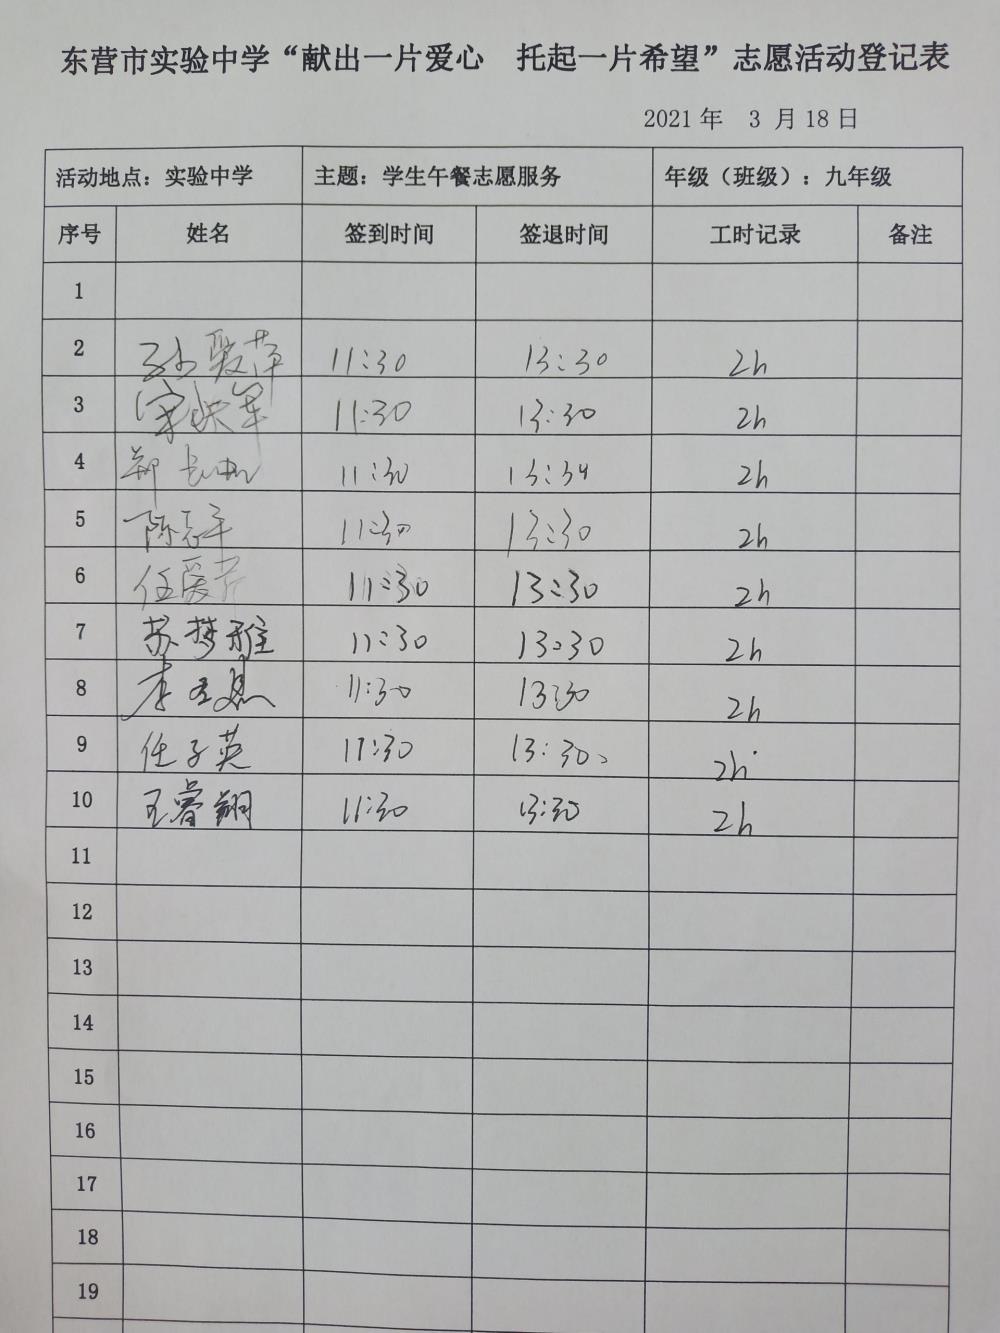 东营市实验中学“献出一片爱心 托起一片希望”志愿活动登记表
2021 年 3 月 18 日
活动地点：实验中学 主题：学生午餐志愿服务 年级（班级）：九年级
序号 姓名 签到时间 签退时间 工时记录 备注
1
2 孙爱萍 11:30 13:30 2h
3 11:30 13:30 2h
4 郑 11:30 13:34 2h
5 陈 11:30 13:30 2h
6 任爱芹 11:30 13:30 2h
7 苏梦雅 11:30 13:30 2h
8 李 11:30 13:30 2h
9 任子英 11:30 13:30 2h
10 王睿翔 11:30 13:30 2h
11
12
13
14
15
16
17
18
19